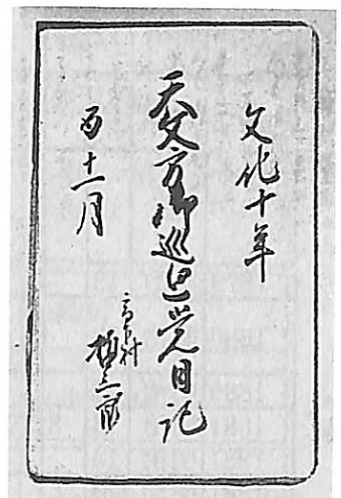 文化十年
天文方御巡覚日記
酉十一月
村